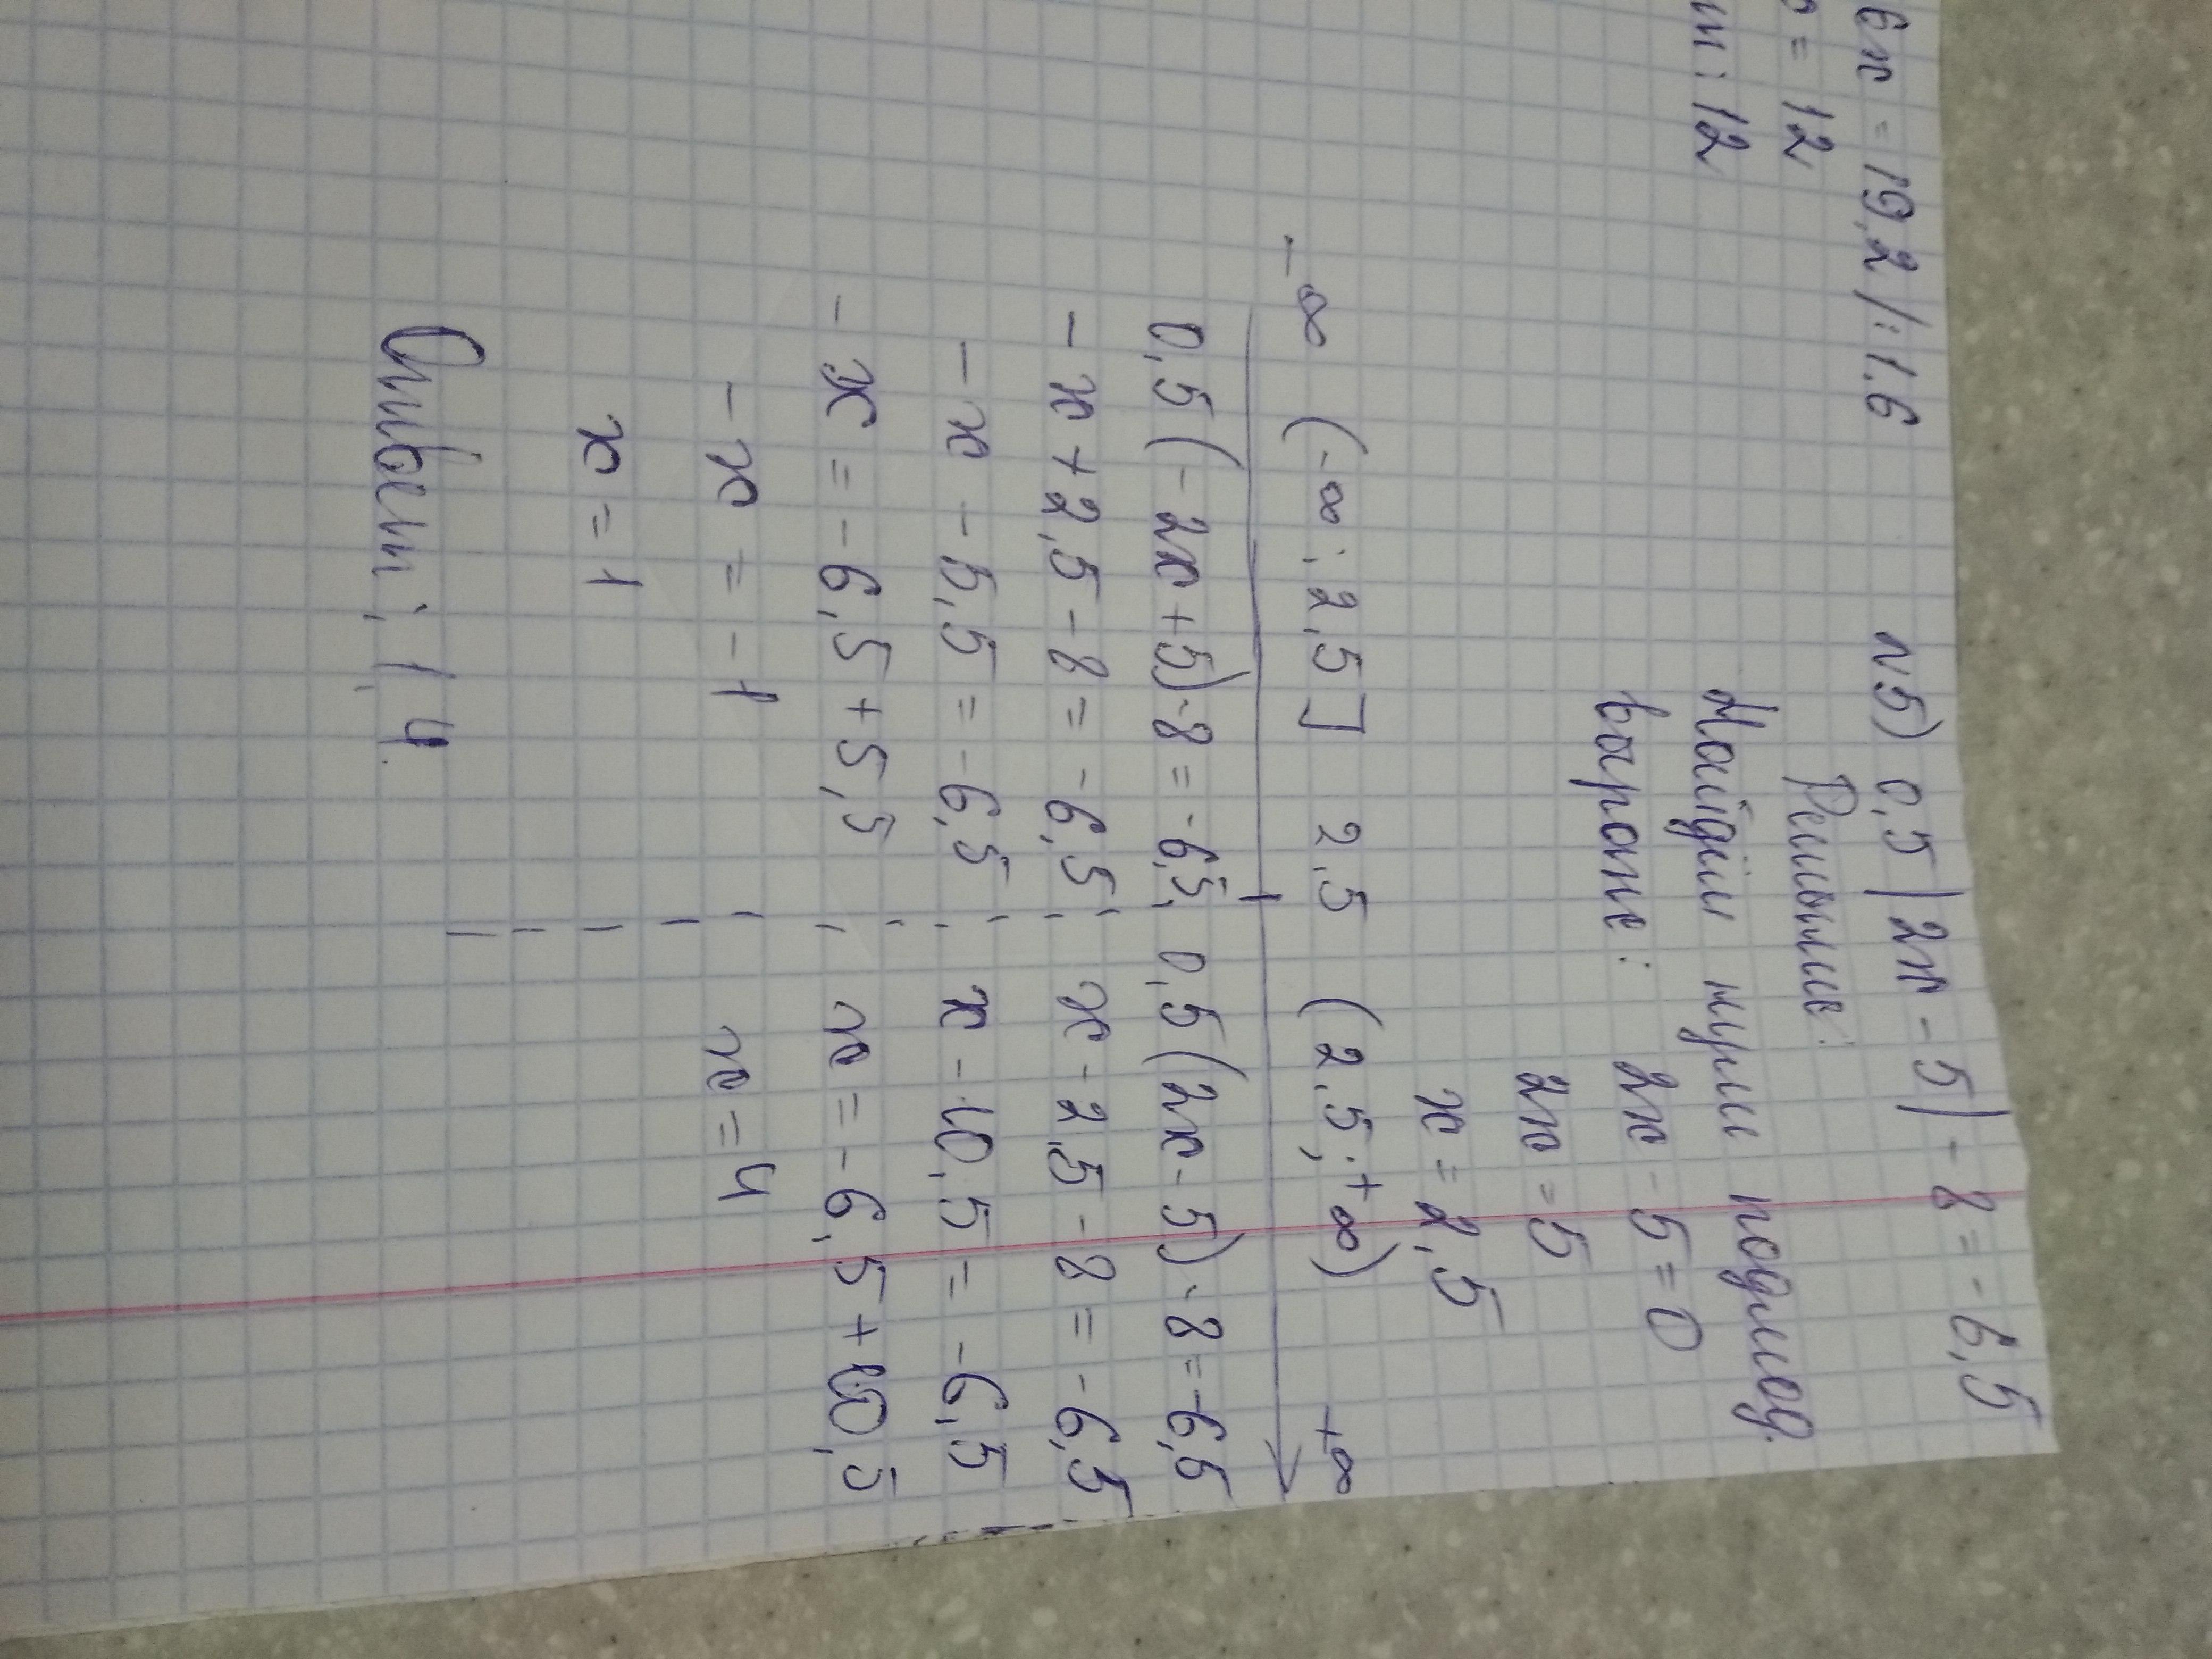 6x = 19,2 /:1.6
= 12
т: 12
N5) 0,5|2x - 5| - 8 = -6,5
Решение:
Найдём нули подмод.
2x - 5 = 0
2x = 5
x = 2,5
-∞ (-∞; 2,5] 2,5 (2,5; +∞) +∞
0,5(-2x+5)-8 = -6,5; 0,5(2x-5)-8 = -6,5
-x+2,5-8 = -6,5; x-2,5-8 = -6,5
-x -5,5 = -6,5 x-10,5 = -6,5
-x = -6,5+5,5 x = -6,5+10,5
-x = -1 x = 4
x = 1
Ответ; 1, 4.